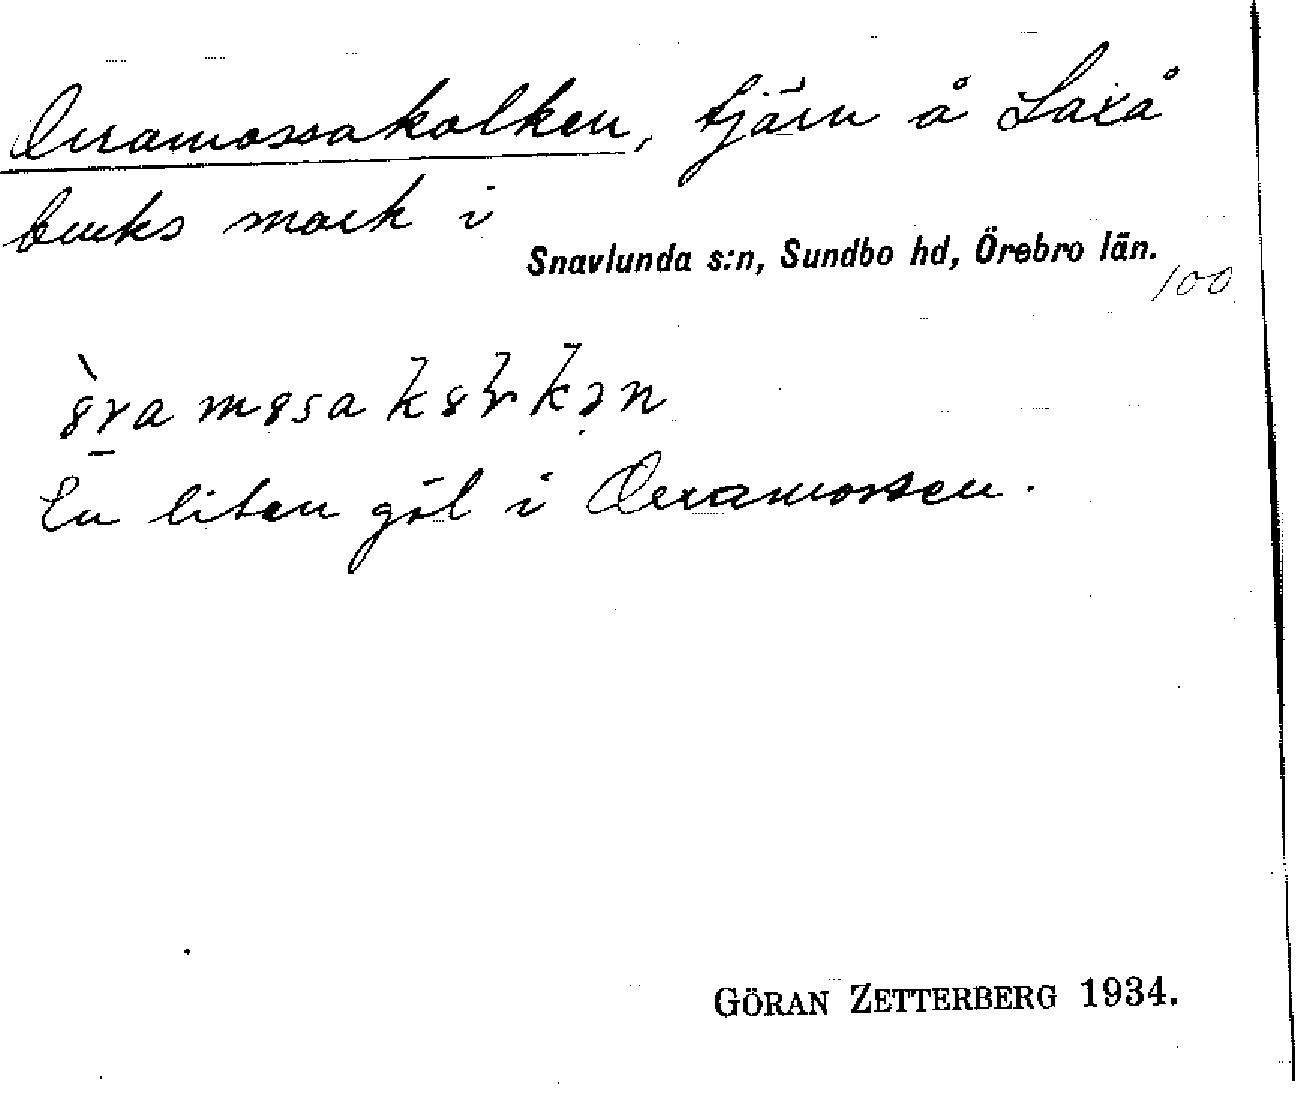 Orramossakolken, tjärn å Laxå
bruks mark i
Snavlunda s:n, Sundbo hd, Örebro län.
100
En liten göl i Orramossen.
GÖRAN ZETTERBERG 1934.